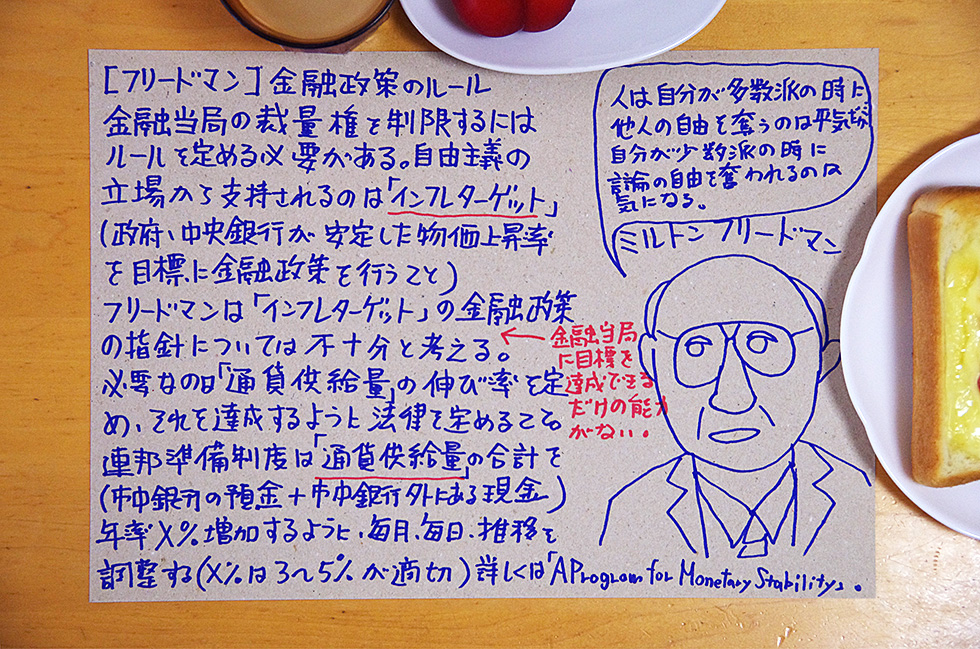 [フリードマン]金融政策のルール
金融当局の裁量権を制限するには
ルールを定める必要がある。自由主義の
立場から支持されるのは「インフレターゲット」
(政府、中央銀行が安定した物価上昇率
を目標に金融政策を行うこと)
フリードマンは「インフレターゲット」の金融政策
の指針については不十分と考える。
必要なのは「通貨供給量」の伸び率を定
め、それを達成するように法律を定めること。
連邦準備制度は「通貨供給量」の合計を
(市中銀行の預金+市中銀行外にある現金)
年率X%増加するように、毎月、毎日、推移を
調整する(X%は3〜5%が適切)詳しくは「A Program for Monetary Stability」。
←金融当局
に目標を
達成できる
だけの能力
がない。
人は自分が多数派の時に
他人の自由を奪うのは平気だが
自分が少数派の時に
言論の自由を奪われるのは
気になる。
ミルトン フリードマン